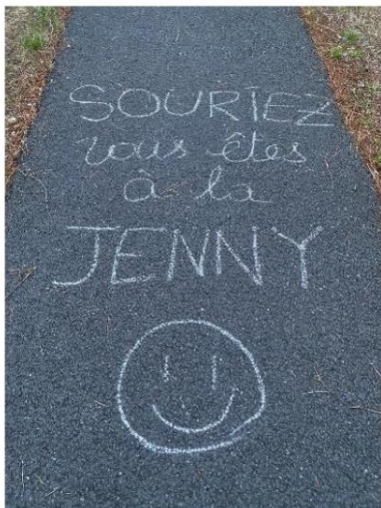 SOURIEZ
vous êtes
à la
JENNY